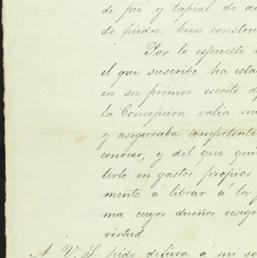 de pié y tapial de ad
de piedra bien constru
Por lo espuesto
el que suscribe ha esta
en su primer escrito d
la Concepcion valia m
y aseguraba competente
conocer, y del que qui
tirlo en gastos propios
mente á librar á la
ma cuyos dueños ecsig
virtud
A. V. S. pido defiera á mi so